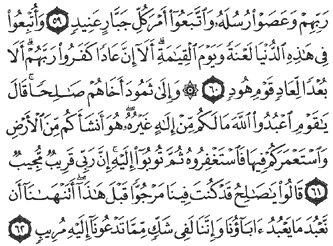 رَبِّهِمْ وَعَصَوْا۟ رُسُلَهُۥ وَٱتَّبَعُوٓا۟ أَمْرَ كُلِّ جَبَّارٍ عَنِيدٍ ٥٩ وَأُتْبِعُوا۟
فِى هَٰذِهِ ٱلدُّنْيَا لَعْنَةً وَيَوْمَ ٱلْقِيَٰمَةِ أَلَآ إِنَّ عَادًا كَفَرُوا۟ رَبَّهُمْ أَلَا
بُعْدًا لِّعَادٍ قَوْمِ هُودٍ ٦٠ ۞ وَإِلَىٰ ثَمُودَ أَخَاهُمْ صَٰلِحًا قَالَ
يَٰقَوْمِ ٱعْبُدُوا۟ ٱللَّهَ مَا لَكُم مِّنْ إِلَٰهٍ غَيْرُهُۥ هُوَ أَنشَأَكُم مِّنَ ٱلْأَرْضِ
وَٱسْتَعْمَرَكُمْ فِيهَا فَٱسْتَغْفِرُوهُ ثُمَّ تُوبُوٓا۟ إِلَيْهِ إِنَّ رَبِّى قَرِيبٌ مُّجِيبٌ
٦١ قَالُوا۟ يَٰصَٰلِحُ قَدْ كُنتَ فِينَا مَرْجُوًّا قَبْلَ هَٰذَآ أَتَنْهَىٰنَآ أَن
نَّعْبُدَ مَا يَعْبُدُ ءَابَآؤُنَا وَإِنَّنَا لَفِى شَكٍّ مِّمَّا تَدْعُونَآ إِلَيْهِ مُرِيبٍ ٦٢